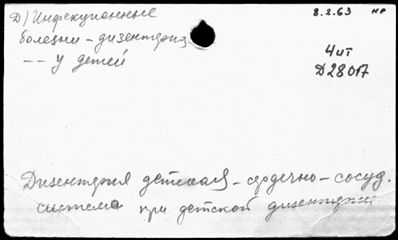 Д) Инфекционные
болезни - дизентерия
-- у детей
8.2.63 нр
Чит
Д28017
Дизентерия детская - сердечно-сосуд.
система при детской дизентерии